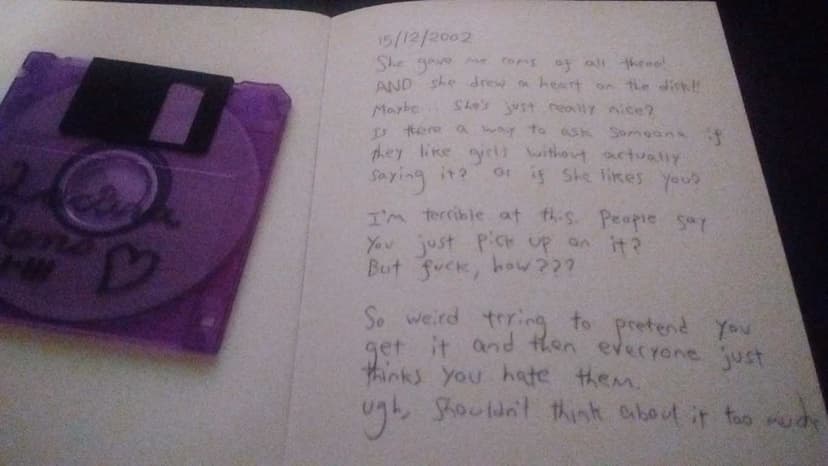 15/12/2002
She gave me roms of all three!
AND she drew a heart on the disk!!
Maybe.. She's just really nice?
Is there a way to ask someone if
they like girls without actually
saying it? Or if she likes you?
I'm terrible at this. People say
You just pick up on it?
But fuck, how???
So weird trying to pretend you
get it and then everyone just
thinks you hate them.
ugh, Shouldn't think about it too much
Roms